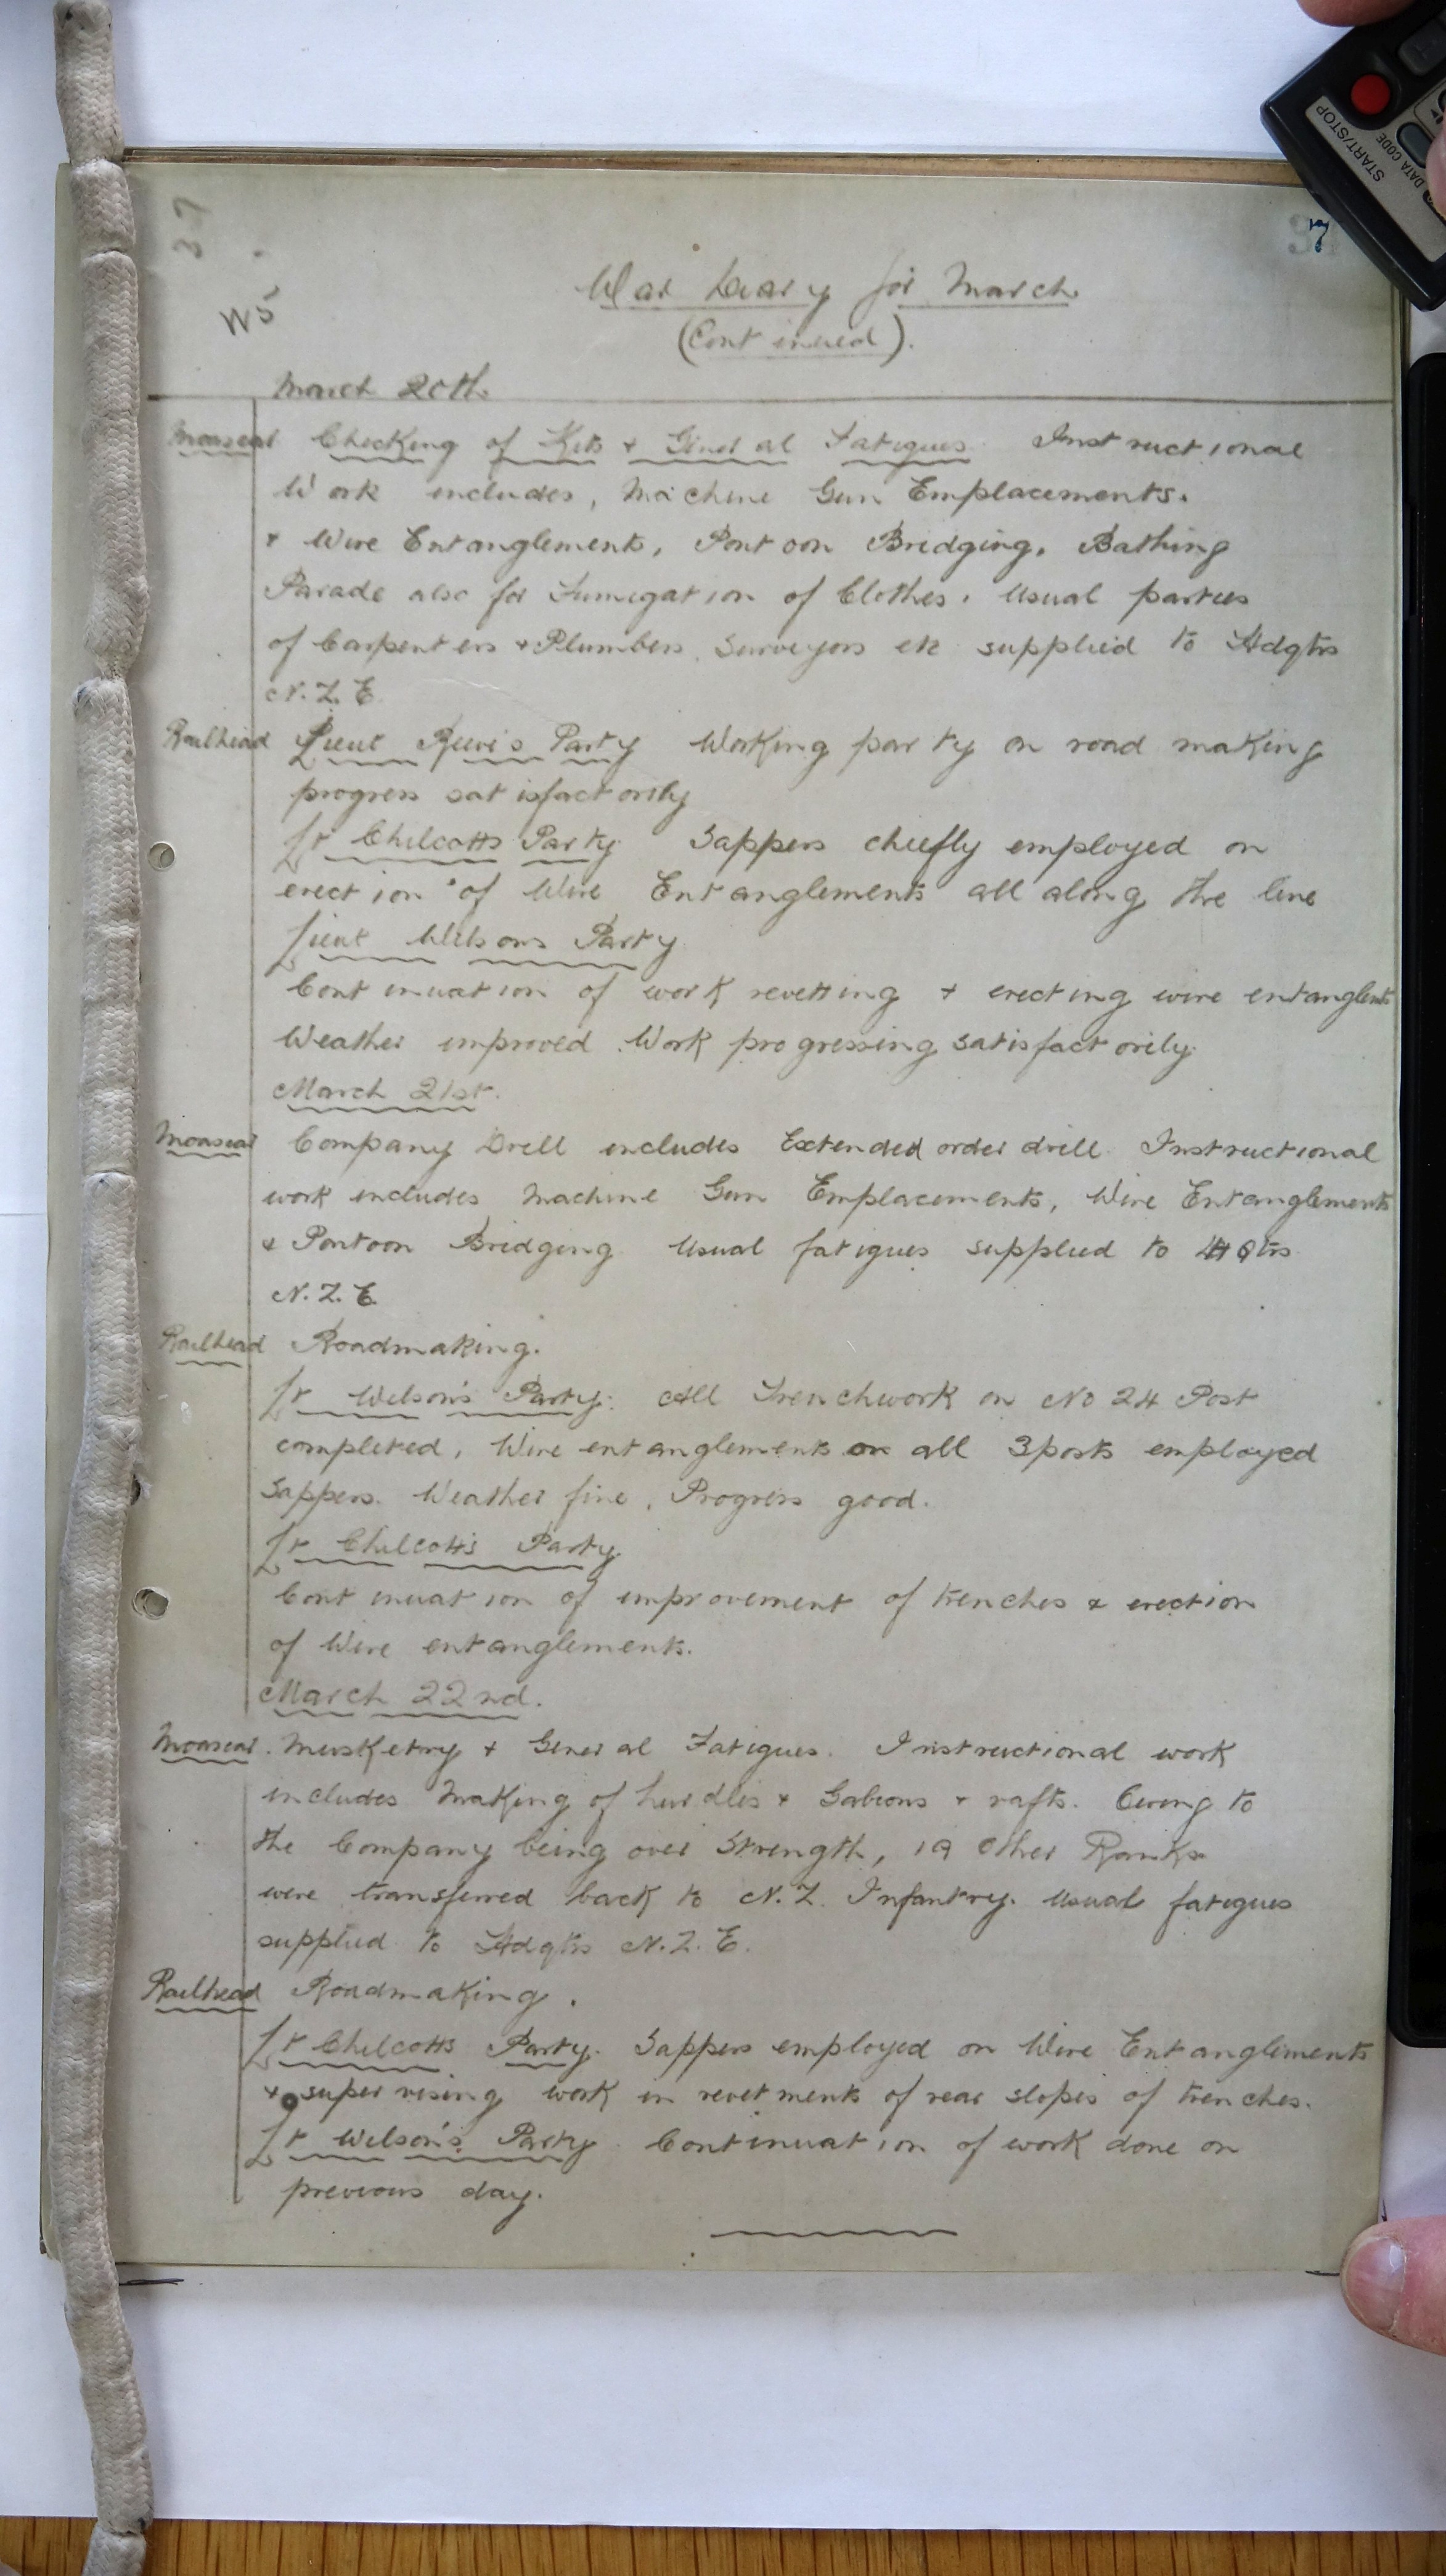 START/STOP
DATA CODE
37
37
W5
War Diary for March
(Continued).
March 20th.
Moascar Checking of Kits & General Fatigues. Instructional
Work includes, Machine Gun Emplacements.
& Wire Entanglements, Pontoon Bridging. Bathing
Parade also for Fumigation of Clothes. Usual parties
of Carpenters & Plumbers, Surveyors etc supplied to Hdqtrs
N.Z.E.
Railhead Lieut Party Working party on road making
progress satisfactorily
Lt Chilcotts Party. Sappers chiefly employed on
erection of Wire Entanglements all along the line
Lieut Wilsons Party
Continuation of work revetting & erecting wire entanglents
Weather improved. Work progressing satisfactorily.
March 21st.
Moascar Company Drill includes Extended order drill. Instructional
work includes Machine Gun Emplacements, Wire Entanglements
& Pontoon Bridging Usual fatigues supplied to HQtrs
N.Z.E.
Railhead Roadmaking.
Lt Wilson's Party: All Trenchwork on No 24 Post
completed, Wire entanglements on all 3 posts employed
Sappers. Weather fine, Progress good.
Lt Chilcott's Party
Continuation of improvement of trenches & erection
of Wire entanglements.
March 22nd.
Moascar. Musketry & General Fatigues. Instructional work
includes Making of hurdles & Gabions & rafts. Owing to
the Company being over Strength, 19 Other Ranks
were transferred back to N.Z. Infantry. Usual fatigues
supplied to Hdqtrs N.Z.E.
Railhead Roadmaking.
Lt Chilcotts Party. Sappers employed on Wire Entanglements
& supervising work in revetments of rear slopes of trenches.
Lt Wilson's Party. Continuation of work done on
previous day.